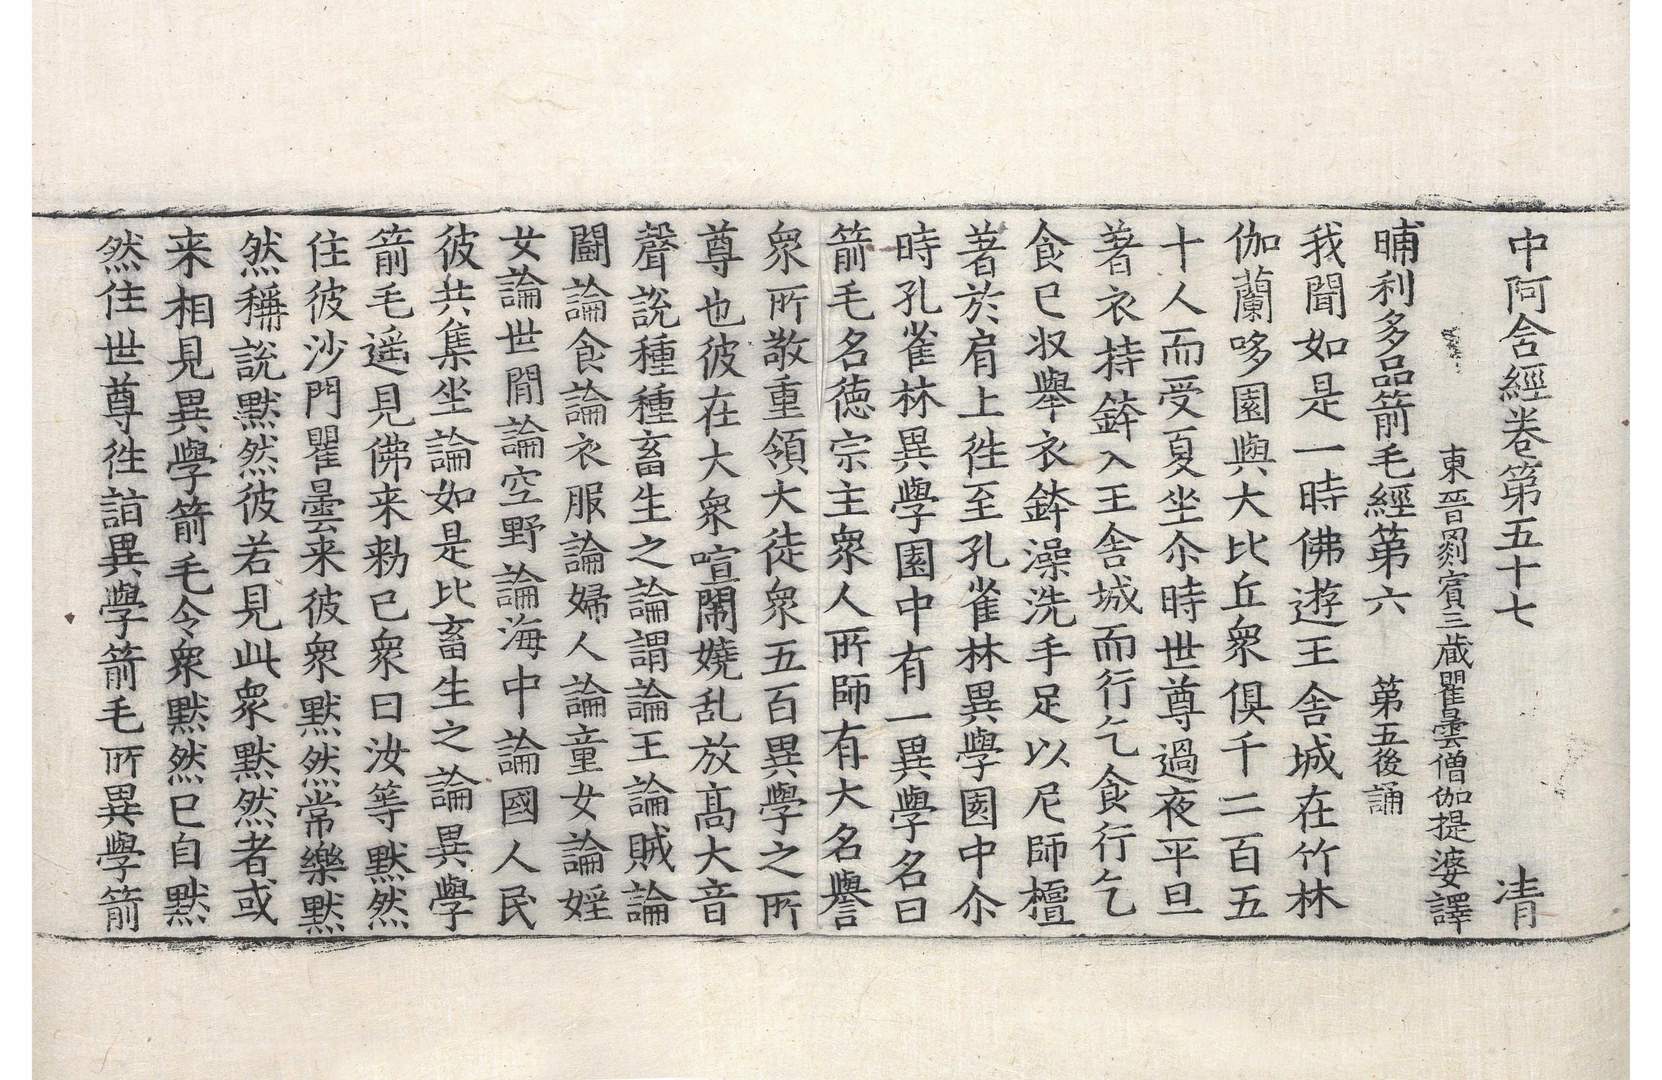 中阿含經卷第五十七　清
東晉罽賓三藏瞿曇僧伽提婆譯
晡利多品箭毛經第六　第五後誦
我聞如是一時佛遊王舍城在竹林
伽蘭哆園與大比丘衆俱千二百五
十人而受夏坐尒時世尊過夜平旦
著衣持鉢入王舍城而行乞食行乞
食已収舉衣鉢澡洗手足以尼師檀
著於肩上徃至孔雀林異學園中尒
時孔雀林異學園中有一異學名曰
箭毛名徳宗主衆人所師有大名譽
衆所敬重領大徒衆五百異學之所
尊也彼在大衆喧閙嬈乱放髙大音
聲說種種畜生之論謂論王論賊論
鬪論食論衣服論婦人論童女論婬
女論世間論空野論海中論國人民
彼共集坐論如是比畜生之論異學
箭毛遥見佛来勑已衆曰汝等默然
住彼沙門瞿曇来彼衆默然常樂默
然稱說默然彼若見此衆默然者或
来相見異學箭毛令衆默然已自默
然住世尊徃詣異學箭毛所異學箭